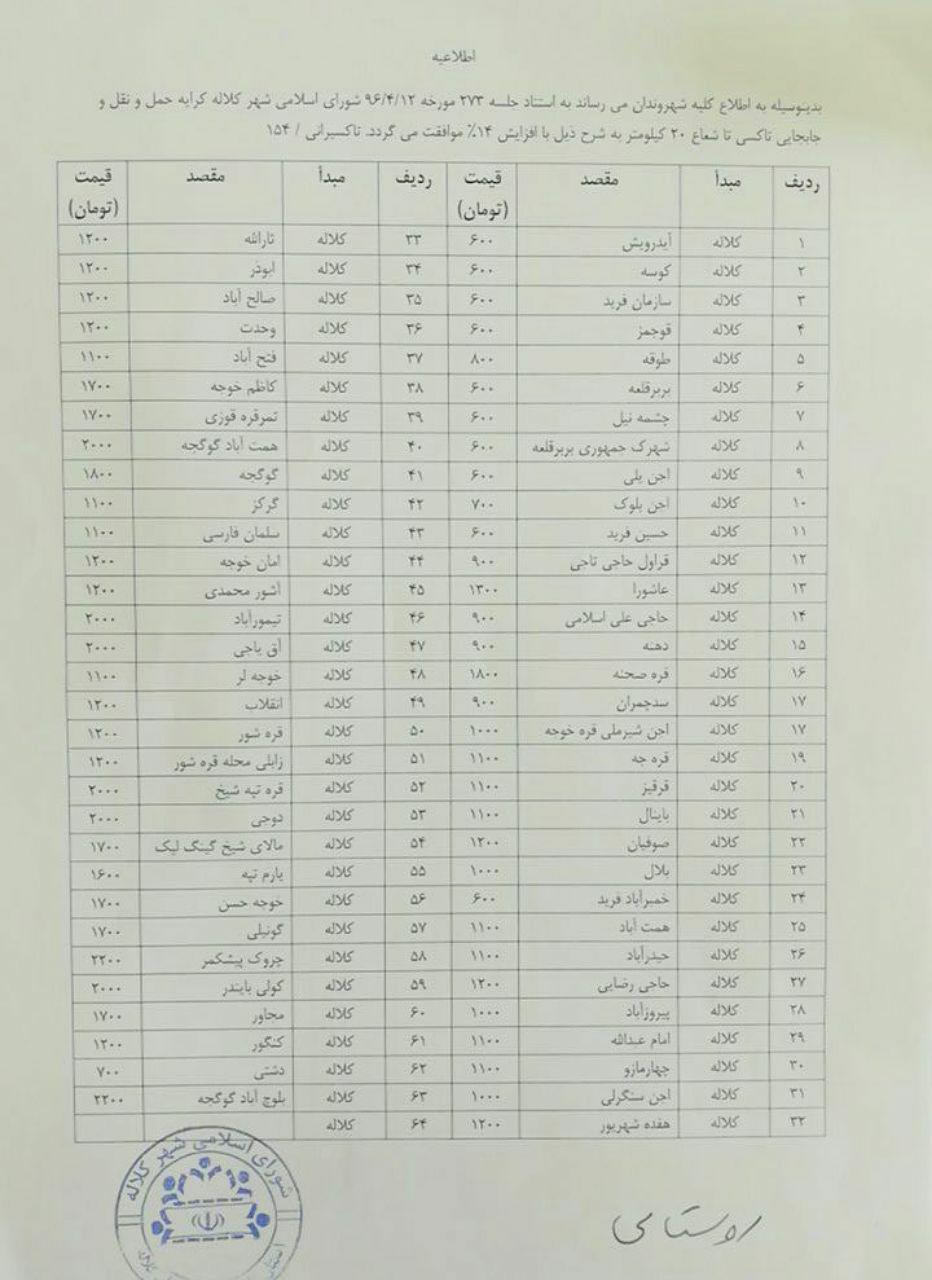 اطلاعیه
بدینوسیله به اطلاع کلیه شهروندان می رساند به استناد جلسه ۲۷۳ مورخه ۹۶/۴/۱۲ شورای اسلامی شهر کلاله کرایه حمل و نقل و
جابجایی تاکسی تا شعاع ۲۰ کیلومتر به شرح ذیل با افزایش ۱۴٪ موافقت می گردد. تاکسیرانی / ۱۵۴
ردیف مبدأ مقصد قیمت (تومان) ردیف مبدأ مقصد قیمت (تومان)
۱ کلاله آیدرویش ۶۰۰ ۳۳ کلاله ثارالله ۱۲۰۰
۲ کلاله کوسه ۶۰۰ ۳۴ کلاله ابوذر ۱۲۰۰
۳ کلاله سازمان فرید ۶۰۰ ۳۵ کلاله صالح آباد ۱۲۰۰
۴ کلاله قوجمز ۶۰۰ ۳۶ کلاله وحدت ۱۲۰۰
۵ کلاله طوقه ۸۰۰ ۳۷ کلاله فتح آباد ۱۱۰۰
۶ کلاله بربرقلعه ۶۰۰ ۳۸ کلاله کاظم خوجه ۱۷۰۰
۷ کلاله چشمه نیل ۶۰۰ ۳۹ کلاله تمرقره قوزی ۱۷۰۰
۸ کلاله شهرک جمهوری بربرقلعه ۶۰۰ ۴۰ کلاله همت آباد گوگجه ۲۰۰۰
۹ کلاله اجن یلی ۶۰۰ ۴۱ کلاله گوگجه ۱۸۰۰
۱۰ کلاله اجن بلوک ۷۰۰ ۴۲ کلاله گرکز ۱۱۰۰
۱۱ کلاله حسین فرید ۶۰۰ ۴۳ کلاله سلمان فارسی ۱۱۰۰
۱۲ کلاله قراول حاجی تاجی ۹۰۰ ۴۴ کلاله امان خوجه ۱۲۰۰
۱۳ کلاله عاشورا ۱۳۰۰ ۴۵ کلاله آشور محمدی ۱۲۰۰
۱۴ کلاله حاجی علی اسلامی ۹۰۰ ۴۶ کلاله تیمورآباد ۲۰۰۰
۱۵ کلاله دهنه ۹۰۰ ۴۷ کلاله آق یاجی ۲۰۰۰
۱۶ کلاله قره صحنه ۱۸۰۰ ۴۸ کلاله خوجه لر ۱۱۰۰
۱۷ کلاله سدچمران ۹۰۰ ۴۹ کلاله انقلاب ۱۲۰۰
۱۷ کلاله اجن شیرملی قره خوجه ۱۰۰۰ ۵۰ کلاله قره شور ۱۲۰۰
۱۹ کلاله قره جه ۱۱۰۰ ۵۱ کلاله زابلی محله قره شور ۱۲۰۰
۲۰ کلاله قرقیز ۱۱۰۰ ۵۲ کلاله قره تپه شیخ ۲۰۰۰
۲۱ کلاله باینال ۱۱۰۰ ۵۳ کلاله دوجی ۲۰۰۰
۲۲ کلاله صوفیان ۱۲۰۰ ۵۴ کلاله مالای شیخ گینگ لیک ۱۷۰۰
۲۳ کلاله بلال ۱۰۰۰ ۵۵ کلاله یارم تپه ۱۶۰۰
۲۴ کلاله خمبرآباد فرید ۶۰۰ ۵۶ کلاله خوجه حسن ۱۷۰۰
۲۵ کلاله همت آباد ۱۱۰۰ ۵۷ کلاله گونیلی ۱۷۰۰
۲۶ کلاله حیدرآباد ۱۱۰۰ ۵۸ کلاله چروک پیشکمر ۲۲۰۰
۲۷ کلاله حاجی رضایی ۱۲۰۰ ۵۹ کلاله کولی بایندر ۲۰۰۰
۲۸ کلاله پیروزآباد ۱۰۰۰ ۶۰ کلاله مجاور ۱۷۰۰
۲۹ کلاله امام عبدالله ۱۱۰۰ ۶۱ کلاله کنگور ۱۲۰۰
۳۰ کلاله چهارمازو ۱۱۰۰ ۶۲ کلاله دشتی ۷۰۰
۳۱ کلاله اجن سنگرلی ۱۰۰۰ ۶۳ کلاله بلوچ آباد گوگجه ۲۲۰۰
۳۲ کلاله هفده شهریور ۱۲۰۰ ۶۴ کلاله
روستایی
شورای اسلامی شهر کلاله